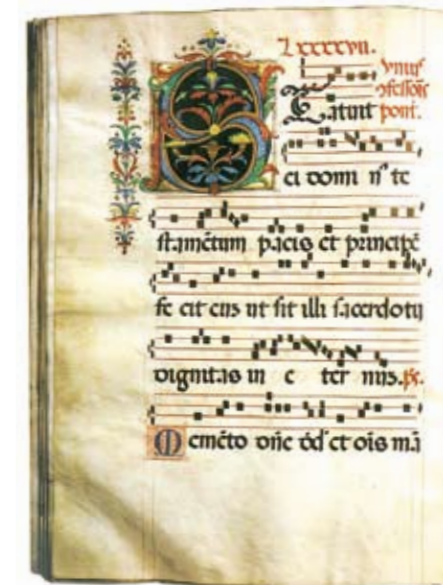 Lxxxxvii.
vnius
ɔfessoris
Statuit pont.
ei domi nꝰ te
stamētum pacis et principē
fe cit eus ut sit illi sacerdotij
dignitas in e ter nus. ps.
Memēto dn̄e dd̄ et ois mā